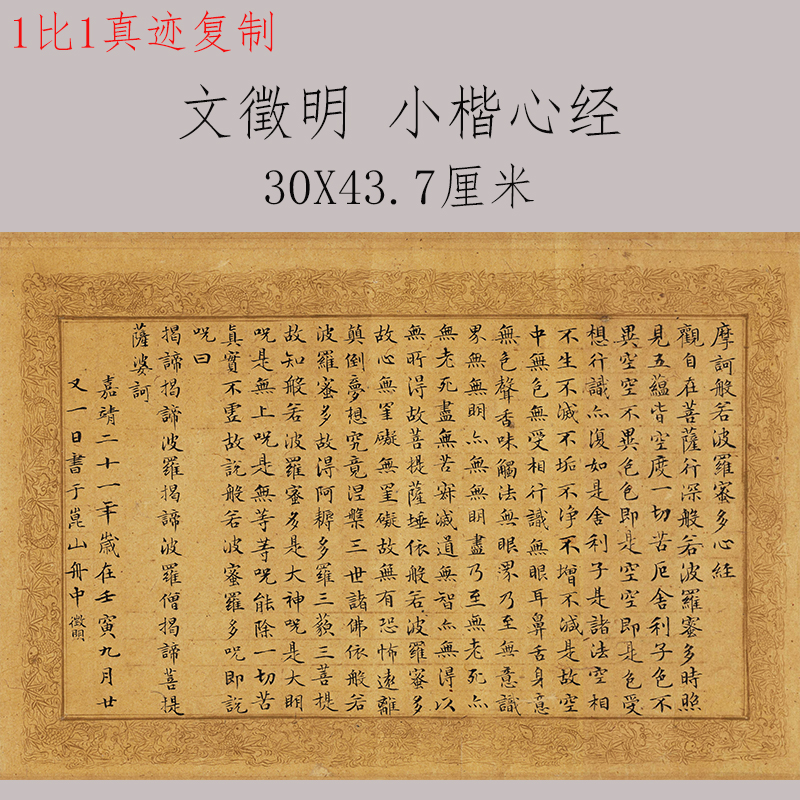 1比1真迹复制
文徵明 小楷心经
30X43.7厘米
摩訶般若波羅蜜多心経
觀自在菩薩行深般若波羅蜜多時照
見五蘊皆空度一切苦厄舍利子色不
異空空不異色色即是空空即是色受
想行識亦復如是舍利子是諸法空相
不生不滅不垢不淨不增不減是故空
中無色無受相行識無眼耳鼻舌身意
無色聲香味觸法無眼界乃至無意識
界無無明亦無無明盡乃至無老死亦
無老死盡無苦寂滅道無智亦無得以
無所得故菩提薩埵依般若波羅蜜多
故心無罣礙無罣礙故無有恐怖遠離
顛倒夢想究竟涅槃三世諸佛依般若
波羅蜜多故得阿耨多羅三藐三菩提
故知般若波羅蜜多是大神呪是大明
呪是無上呪是無等等呪能除一切苦
真實不虛故說般若波蜜羅多呪即說
呪曰
揭諦揭諦波羅揭諦波羅僧揭諦菩提
薩婆訶
嘉靖二十一年歲在壬寅九月廿
又一日書于崑山舟中 徵明